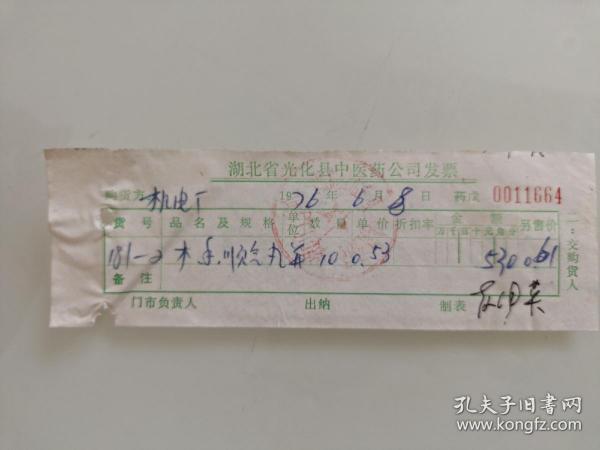 湖北省光化县中医药公司发票
购货方 机电厂 1976年6月8日 药改 0011664
货号 品名及规格 单位 数量 单价 折扣率 金额 另售价
万千百十元角分
181-2 木香顺气丸 10 0.53 530 0.61
备注
门市负责人 出纳 制表
二:交购货人
孔夫子旧书网
www.kongfz.com